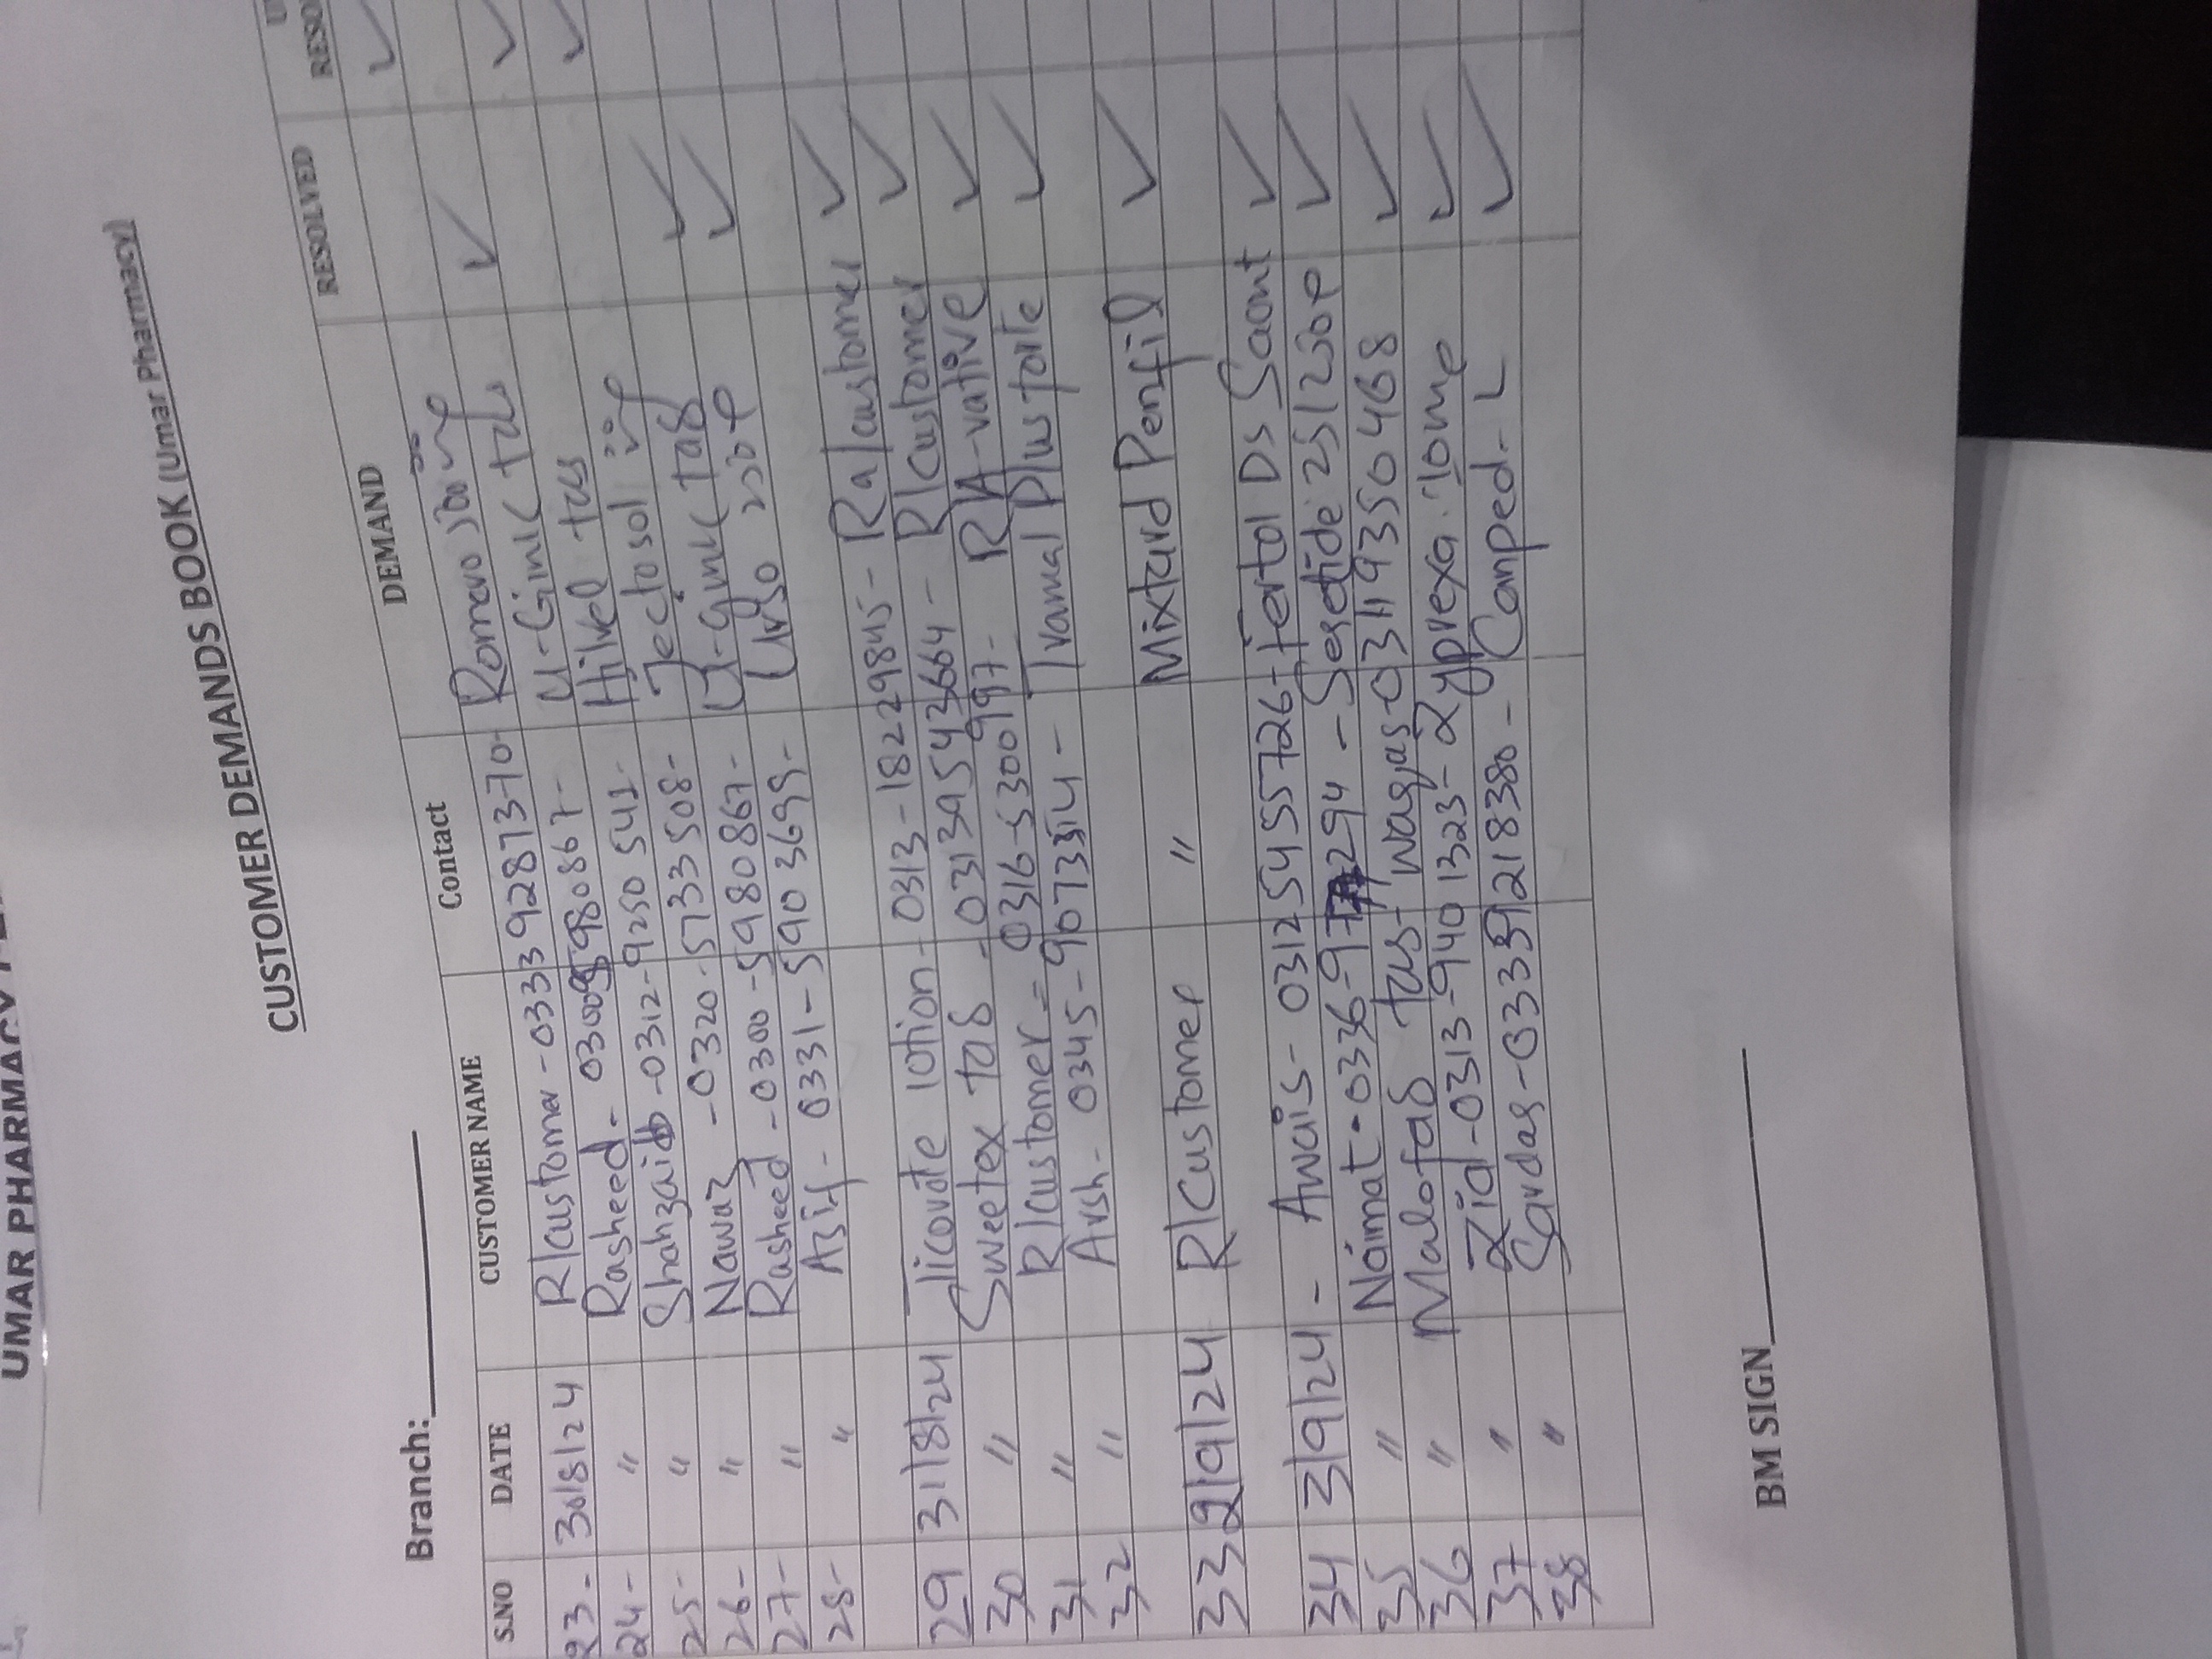 UMAR PHARMACY
CUSTOMER DEMANDS BOOK (Umar Pharmacy)
Branch:
S.NO DATE CUSTOMER NAME Contact DEMAND RESOLVED
23- 30/8/24 R/customer -03339281370-
24- " Rasheed- U-Ginic tab
25- " Shahzaib -0312-9250541- Hilvel tab
26- " Nawaz -0320-5733508- Jectosol inj
27- " Rasheed -0300-5980867- U-ginic tab
28- " Asif- 0331-5903699- Urso 250
29 31/8/24 lotion-0313-1822984S- Ra/customer
30 " Sweetex tab -03139543664- R/customer
31 " R/customer- 0316-5300997- RA-vative
32 " Arsh- 0345-9073314- Tramal Plus forte
33 2/9/24 R/Customer " Mixtard Penfil
34 3/9/24- Awais- 03125455726- Ds
35 " Naimat-0336- -Seretide 25/250
36 " tab- Waqas-03119350468
37 " Zia-0313-9401323-Zyprexa 10mg
38 " -03339218380-
BM SIGN